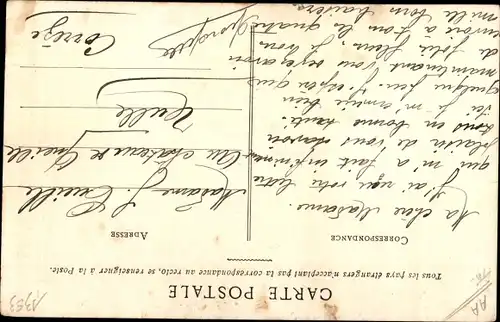 CARTE POSTALE
Tous les pays étrangers n'acceptant pas la correspondance au recto, se renseigner à la Poste.
CORRESPONDANCE
ADRESSE
Ma chère Madame.
J'ai reçu votre lettre
qui m'a fait infiniment
plaisir de vous savoir
tous en bonne santé.
ici je m'ennuie bien
quelque peu. J'espère que
maintenant vous
de jolies fleurs, je vous
envoie à tous les quatre
mille bons baisers.
Madame J.
au château de
Tulle
Corrèze
1353
AA